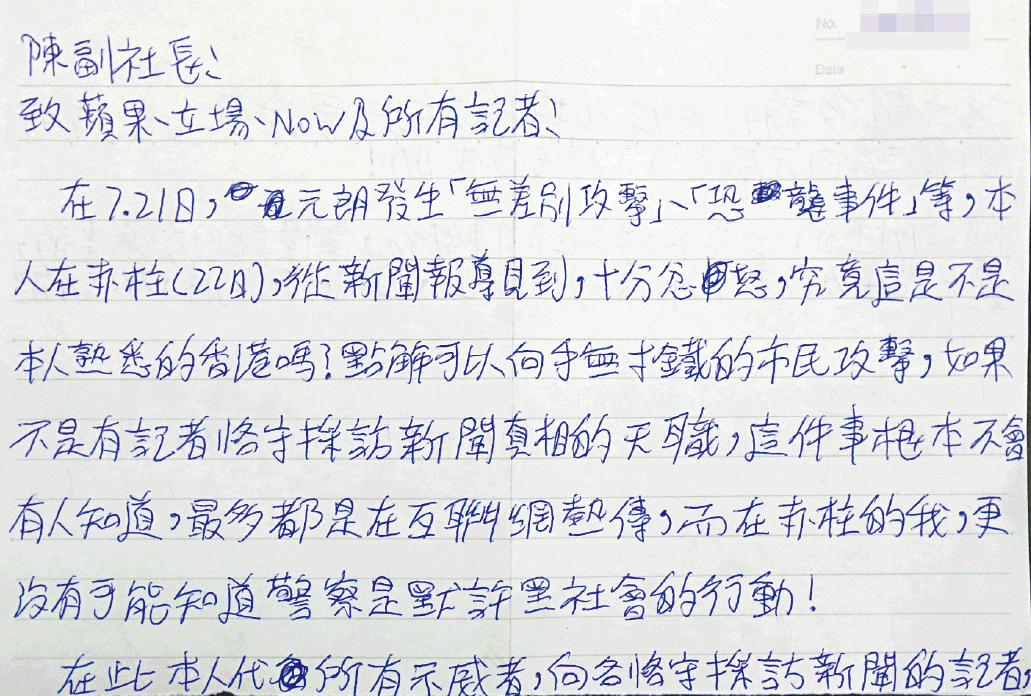 No.
Date
陳副社長:
致蘋果、立場、Now及所有記者:
在7.21日,元朗發生「無差別攻擊」、「恐襲事件」等,本
人在赤柱(22日),從新聞報導見到,十分忿怒,究竟這是不是
本人熟悉的香港嗎?點解可以向手無寸鐵的市民攻擊,如果
不是有記者恪守採訪新聞真相的天職,這件事根本不會
有人知道,最多都是在互聯網熱傳,而在赤柱的我,更
沒有可能知道警察是默許黑社會的行動!
在此本人代所有示威者,向各恪守採訪新聞的記者